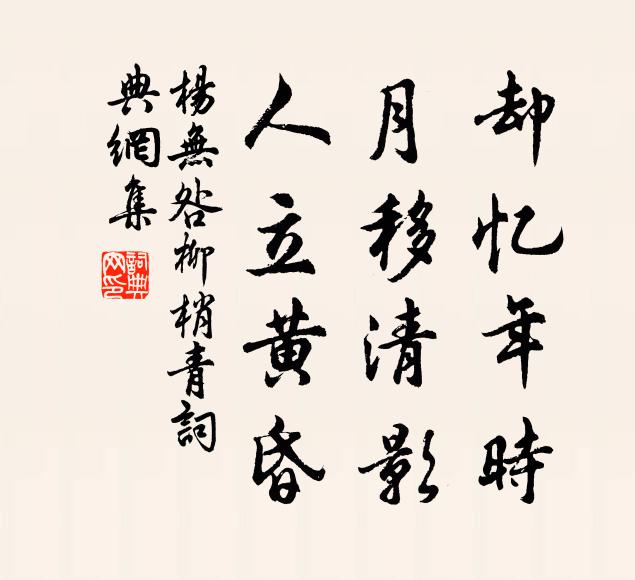 却忆年時
月移清影
人立黄昏
楊無咎柳梢青詞
典網集
詞典網印